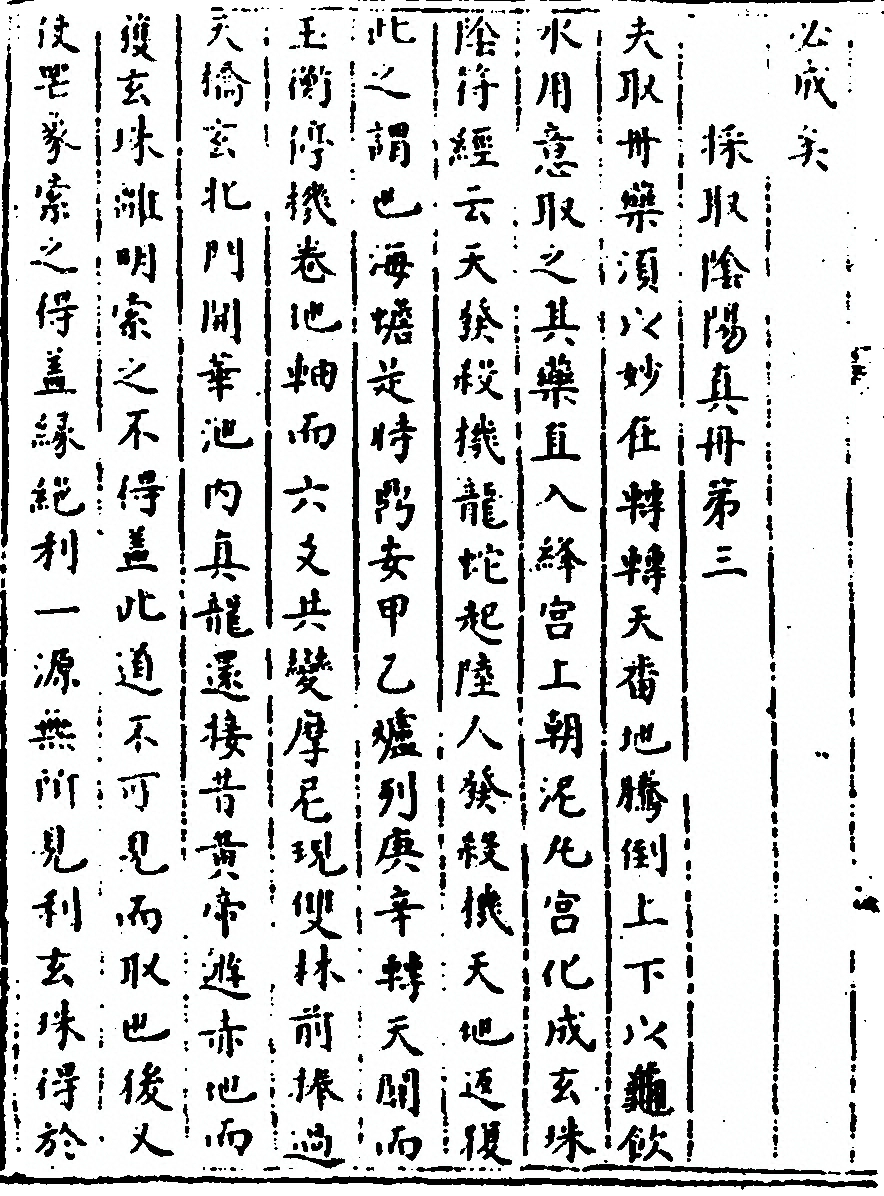 必成矣
採取陰陽真丹第三
夫取丹藥須以妙任轉轉天畨地騰倒上下以龜飲
水用意取之其藥直入絳宮上朝泥丸宮化成玄珠
陰符經云天發殺機龍蛇起陸人發殺機天地返覆
此之謂也海蟾是時鼎安甲乙爐列庚辛轉天關而
玉衡停機卷地軸而六爻共變摩尼現雙林前搬過
天橋玄北門開華池内真龍還接昔黃帝遊赤地而
獲玄珠離明索之不得盖此道不可見而取也後又
使罡象索之得盖緣絕利一源無所見利玄珠得於